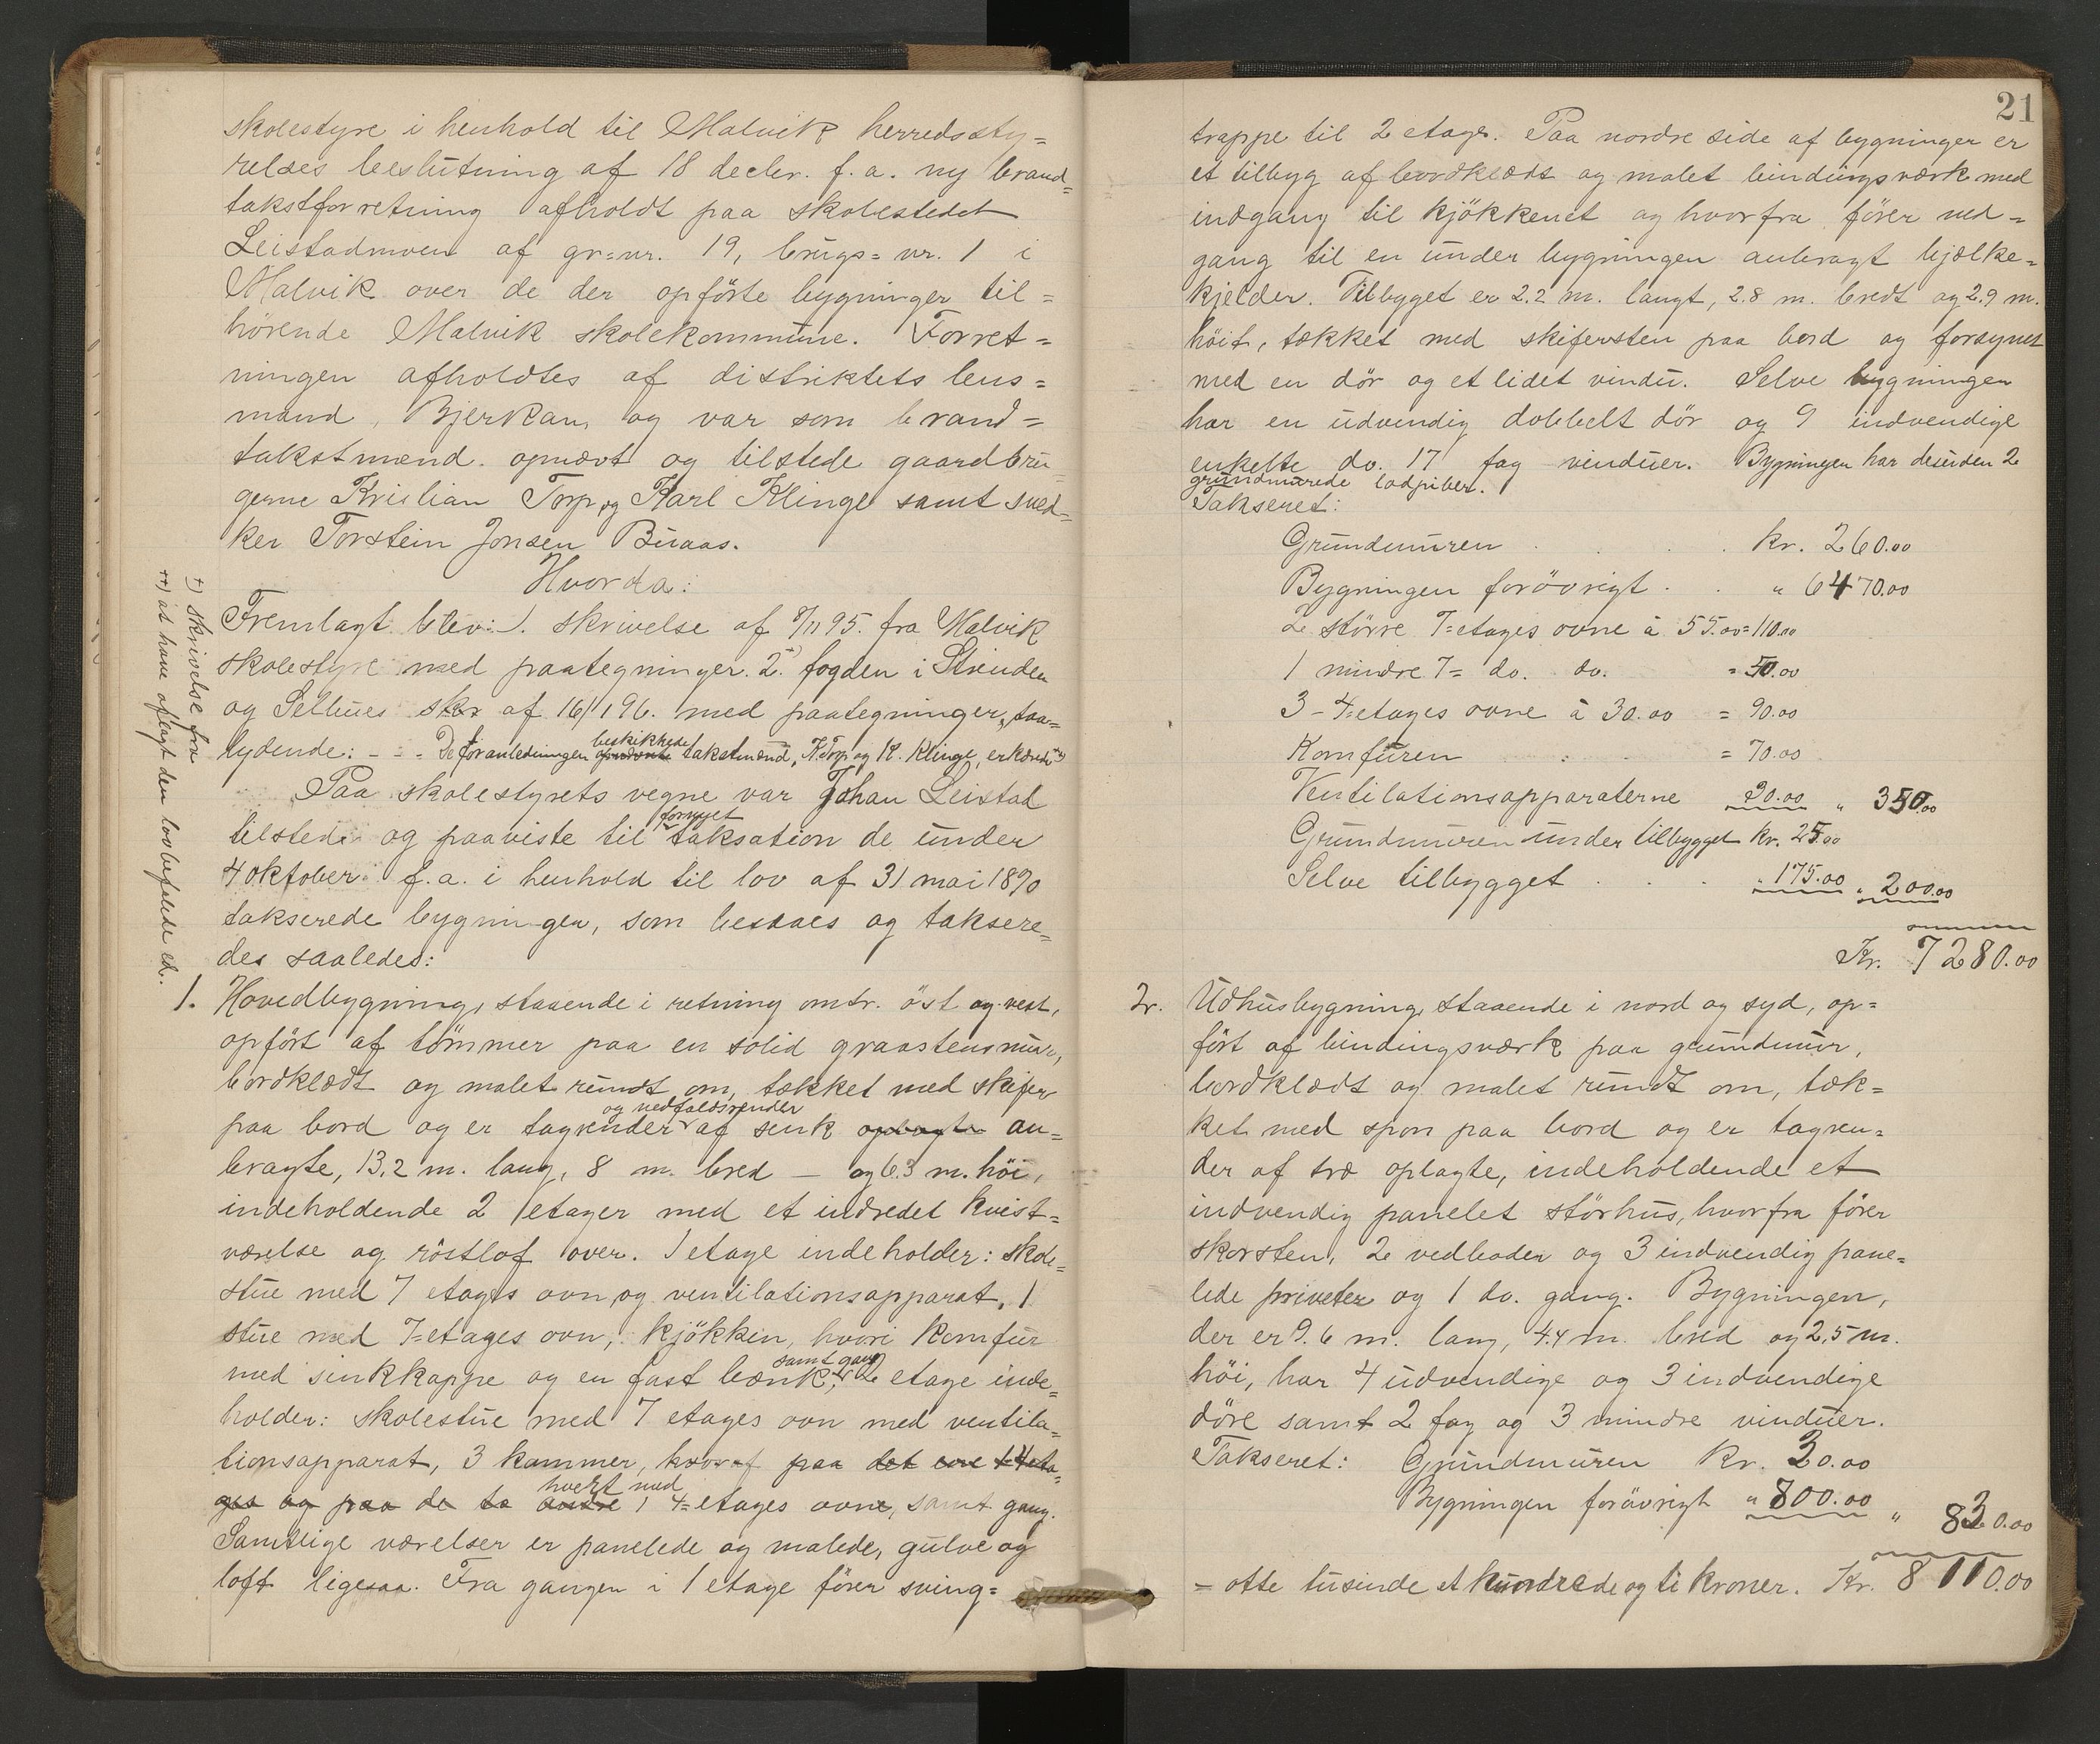 skolestyre i henhold til Malvik herredssty=
relses beslutning af 18 decbr. f.a. ny brand=
takstforretning afholdt paa skolestedet
Leistadmoen af gr=nr. 19, brugs=nr. 1 i
Malvik over de der opförte bygninger til=
hörende Malvik skolekommune. Forret=
ningen afholdtes af distriktets lens=
mand, Bjerkan, og var som brand=
takstmænd opnævt og tilstede gaardbru=
gerne Kristian Torp og Karl Klinge samt sned=
ker Torstein Jonsen Buaas.
Hvorda:
Fremlagt blev: 1. skrivelse af 8/11 95. fra Malvik
skolestyre med paategninger. 2. +) fogden i Strinden
og Selbues skr af 16/1 96. med paategninger, saa=
lydende: - - - De foranledningen beskikkede takstmænd, K. Torp og K. Klinge, erklærede ++)
Paa skolestyrets vegne var Johan Leistad
tilstede og paaviste til fornyet taksation de under
4 oktober f.a. i henhold til lov af 31 mai 1890
takserede bygninger, som besaaes og taksere=
des saaledes:
1. Hovedbygning, staaende i retning omtr. öst og vest,
opfört af tömmer paa en solid graastensmur,
bordklædt og malet rundt om, tækket med skifer
paa bord og er tagrender og nedfaldsrender af sink oplagte an=
bragte, 13,2 m. lang, 8 m. bred — og 6.3 m. höi,
indeholdende 2 etager med et indredet kvist=
værelse og röstloft over. 1 etage indeholder: skole=
stue med 7 etages ovn og ventilationsapparat, 1
stue med 7=etages ovn, kjökken, hvori komfur
med sinkkappe og en fast bænk, samt gang 2 etage inde=
holder: skolestue med 7 etages ovn med ventila=
tionsapparat, 3 kammer, hvoraf paa det ene 1 4 eta=
ges og paa de to andre hvert med 1 4=etages ovne, samt gang.
Samtlige værelser er panelede og malede, gulve og
loft ligesaa. Fra gangen i 1 etage förer sving=
+) skrivelse fra
++) at have aflagt den lovbefalede ed.
21
trappe til 2 etage. Paa nordre side af bygningen er
et tilbyg af bordklædt og malet bindingsværk med
indgang til kjökkenet og hvorfra förer ned=
gang til en under bygningen anbragt bjælke=
kjelder. Tilbygget er 2.2 m. langt, 2.8 m. bredt og 2.9 m.
höit, tækket med skifersten paa bord og forsynet
med en dör og et lidet vindu. Selve bygningen
har en udvendig dobbelt dör og 9 indvendige
enkelte do. 17 fag vinduer. Bygningen har desuden 2
grundmurede lodpiber.
Takseret:
Grundmuren . . . kr. 260.00
Bygningen forövrigt . . " 6470.00
2 större 7=etages ovne à 55.00 = 110.00
1 mindre 7= do. do. = 50.00
3 - 4=etages ovne à 30.00 = 90.00
Komfuren . . = 70.00
Ventilationsapparaterne 30.00 " 350.00
Grundmuren under tilbygget kr. 25.00
Selve tilbygget . . . " 175.00 " 200.00
Kr. 7280.00
2. Udhusbygning, staaende i nord og syd, op=
fört af bindingsværk paa grundmur,
bordklædt og malet rundt om, tæk=
ket med spon paa bord og er tagren=
der af træ oplagte, indeholdende et
indvendig panelet störhus, hvorfra förer
skorsten, 2 vedboder og 3 indvendig pane=
lede priveter og 1 do. gang. Bygningen,
der er 9.6 m. lang, 4.4 m. bred og 2,5 m.
höi, har 4 udvendige og 3 indvendige
döre samt 2 fag og 3 mindre vinduer.
Takseret: Grundmuren Kr. 30.00
Bygningen forövrigt " 800.00 " 830.00
= otte tusinde et hundrede og ti kroner. Kr. 8110.00